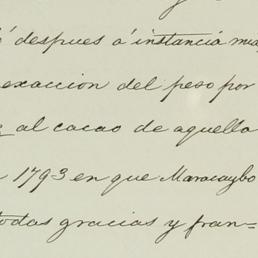 despues á instancia
exaccion del peso por
al cacao de aquella
1793 en que Maracaybo
todas gracias y fran=